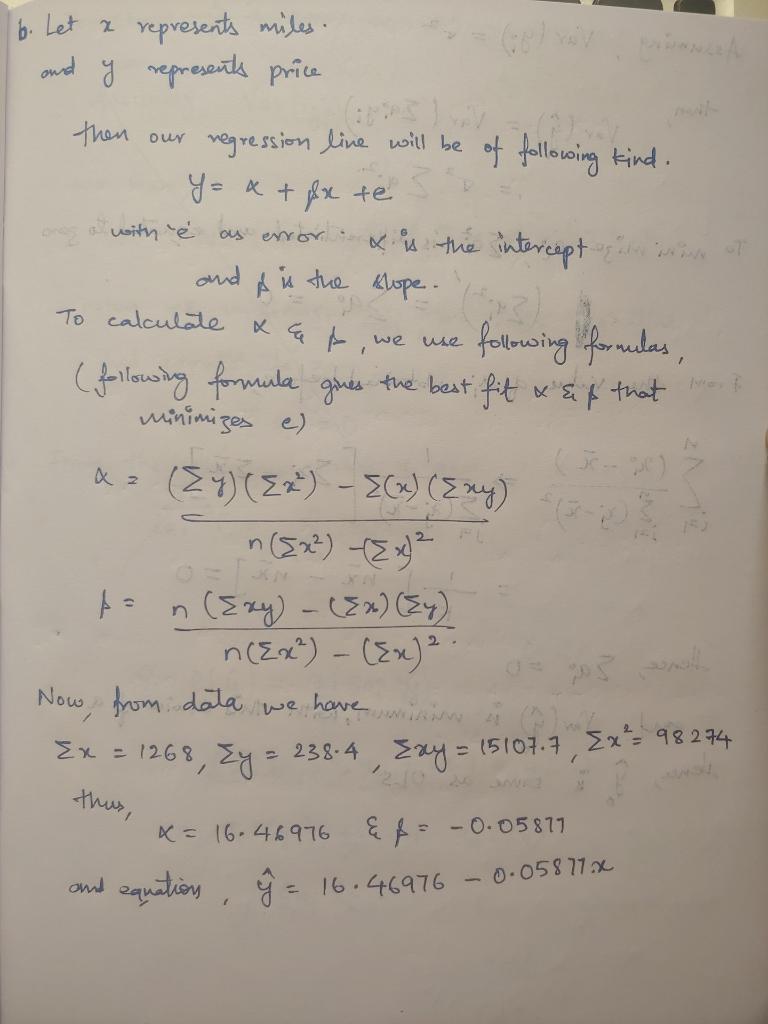 b. Let x represents miles.
and y represents price
then our regression line will be of following kind.
y = α + βx + e
with 'e' as error. α is the intercept
and β is the slope.
To calculate α & β, we use following formulas,
(following formula gives the best fit α & β that
minimizes e)
α = (Σy)(Σx²) - Σ(x)(Σxy)
n(Σx²) - (Σx)²
β = n(Σxy) - (Σx)(Σy)
n(Σx²) - (Σx)².
Now, from data we have
Σx = 1268, Σy = 238.4, Σxy = 15107.7, Σx² = 98274
thus,
α = 16.46976 & β = -0.05877
and equation, ŷ = 16.46976 - 0.05877x